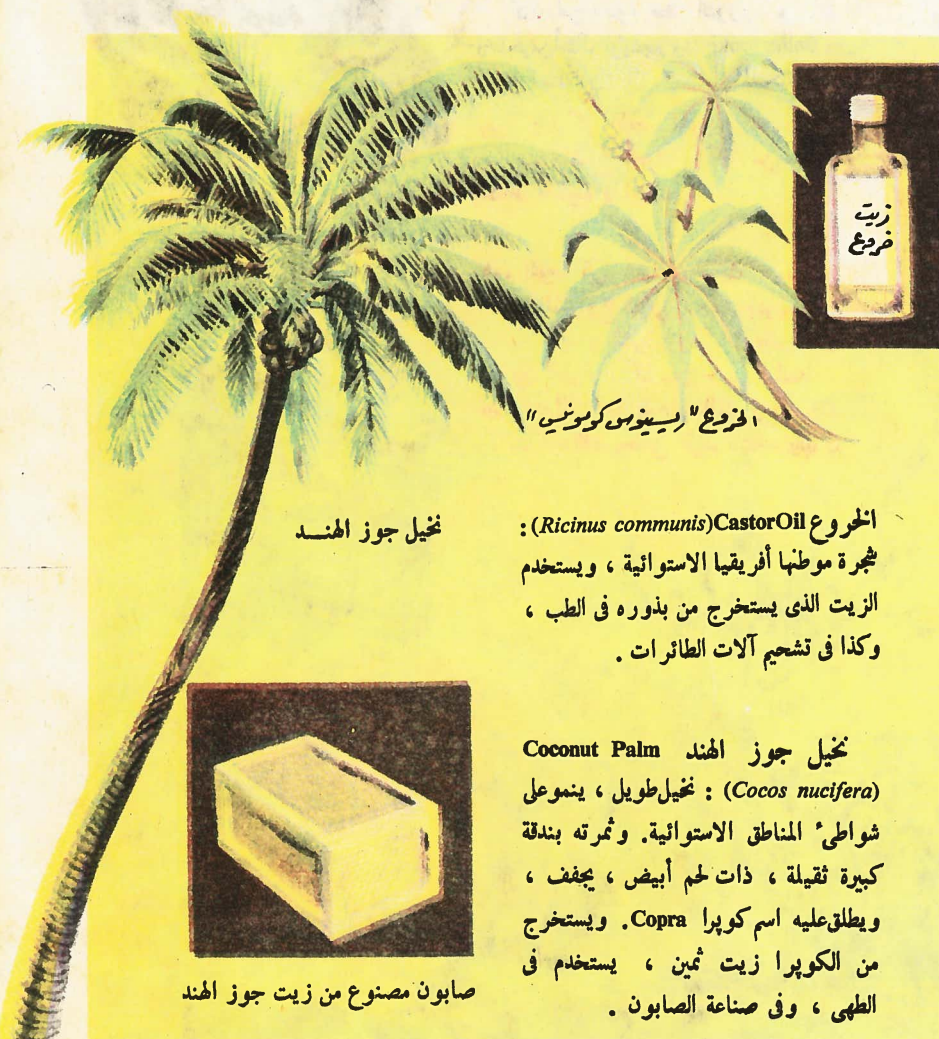 زيت
خروع
الخروع "ريسينوس كومونيس"
نخيل جوز الهنــد
الخروع CastorOil (Ricinus communis) :
شجرة موطنها أفريقيا الاستوائية ، ويستخدم
الزيت الذى يستخرج من بذوره فى الطب ،
وكذا فى تشحيم آلات الطائرات .
نخيل جوز الهند Coconut Palm
(Cocos nucifera) : نخيل طويل ، ينمو على
شواطىء المناطق الاستوائية . وثمرته بندقة
كبيرة ثقيلة ، ذات لحم أبيض ، يجفف ،
ويطلق عليه اسم كوپرا Copra . ويستخرج
من الكوپرا زيت ثمين ، يستخدم فى
الطهى ، وفى صناعة الصابون .
صابون مصنوع من زيت جوز الهند